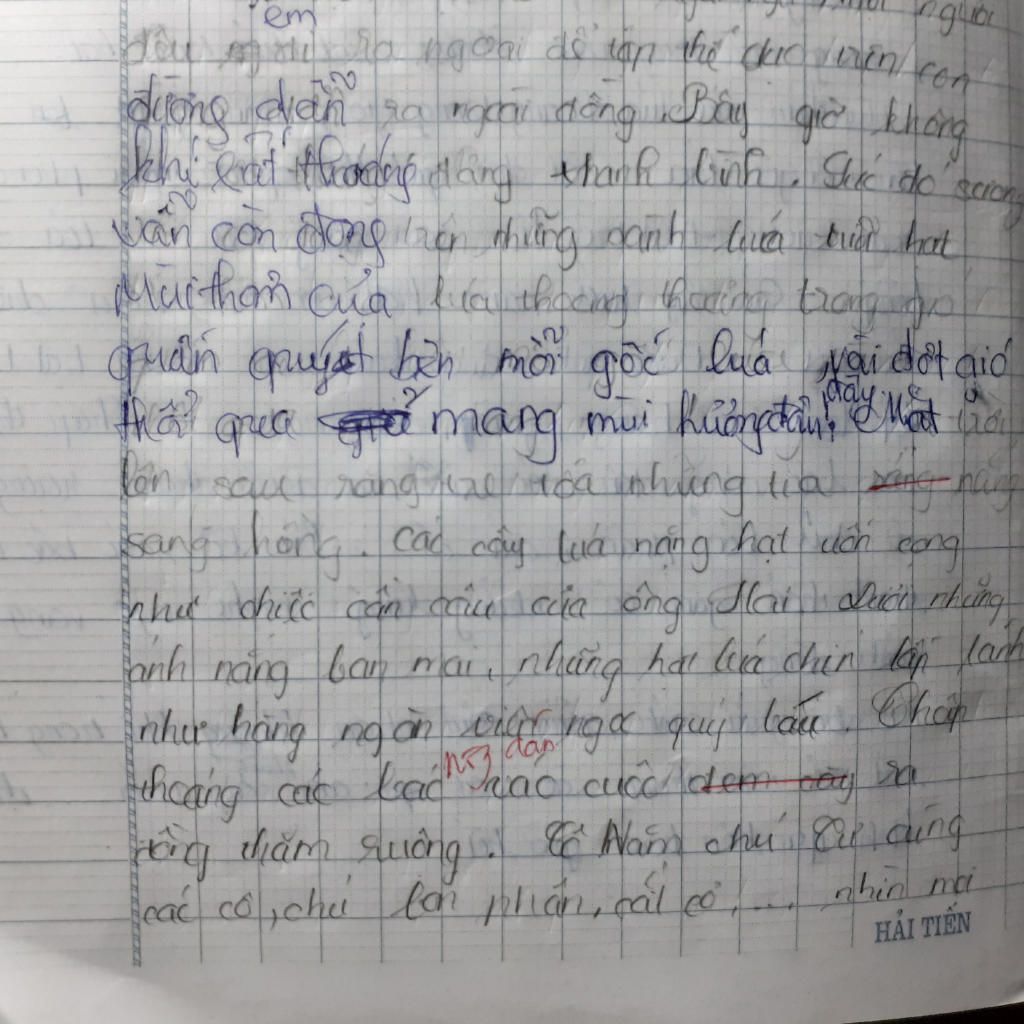 người
em
đều ra ngoài để tập thể dục trên con
đường dẫn ra ngoài đồng. Bây giờ không
khí thanh tĩnh. Lúc đó sương
vẫn còn đọng trên những lúa
Mùi thơm của lúa thoang thoảng trong gió
quấn quýt bên mỗi gốc luá vài đợt gió
thổi qua mang mùi hương đâu đây. Mặt trời
lên sau rặng tre toả những tia nắng
sáng hồng. Các cây luá nặng hạt uốn cong
như chiếc cần câu của ông Hai Dưới những
ánh nắng ban mai, những hạt luá chín lấp lánh
như hàng ngàn viên ngọc quý báu. Thấp
thoáng các bác nông dân vác cuốc ra
đồng thăm ruộng. Năm chú Tư cùng
các cô, chú bón phân, cắt cỏ, .... nhìn mọi
HẢI TIẾN